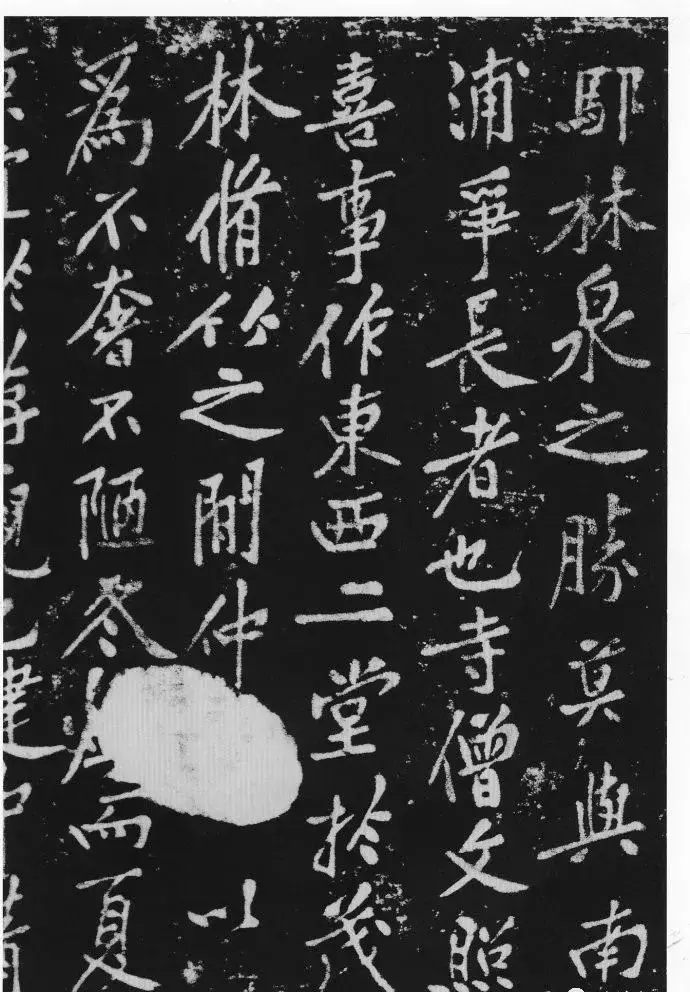 邸林泉之勝莫與南
浦爭長者也寺僧文照
喜事作東西二堂於茂
林脩竹之間仲以
為不奢不陋冬而夏